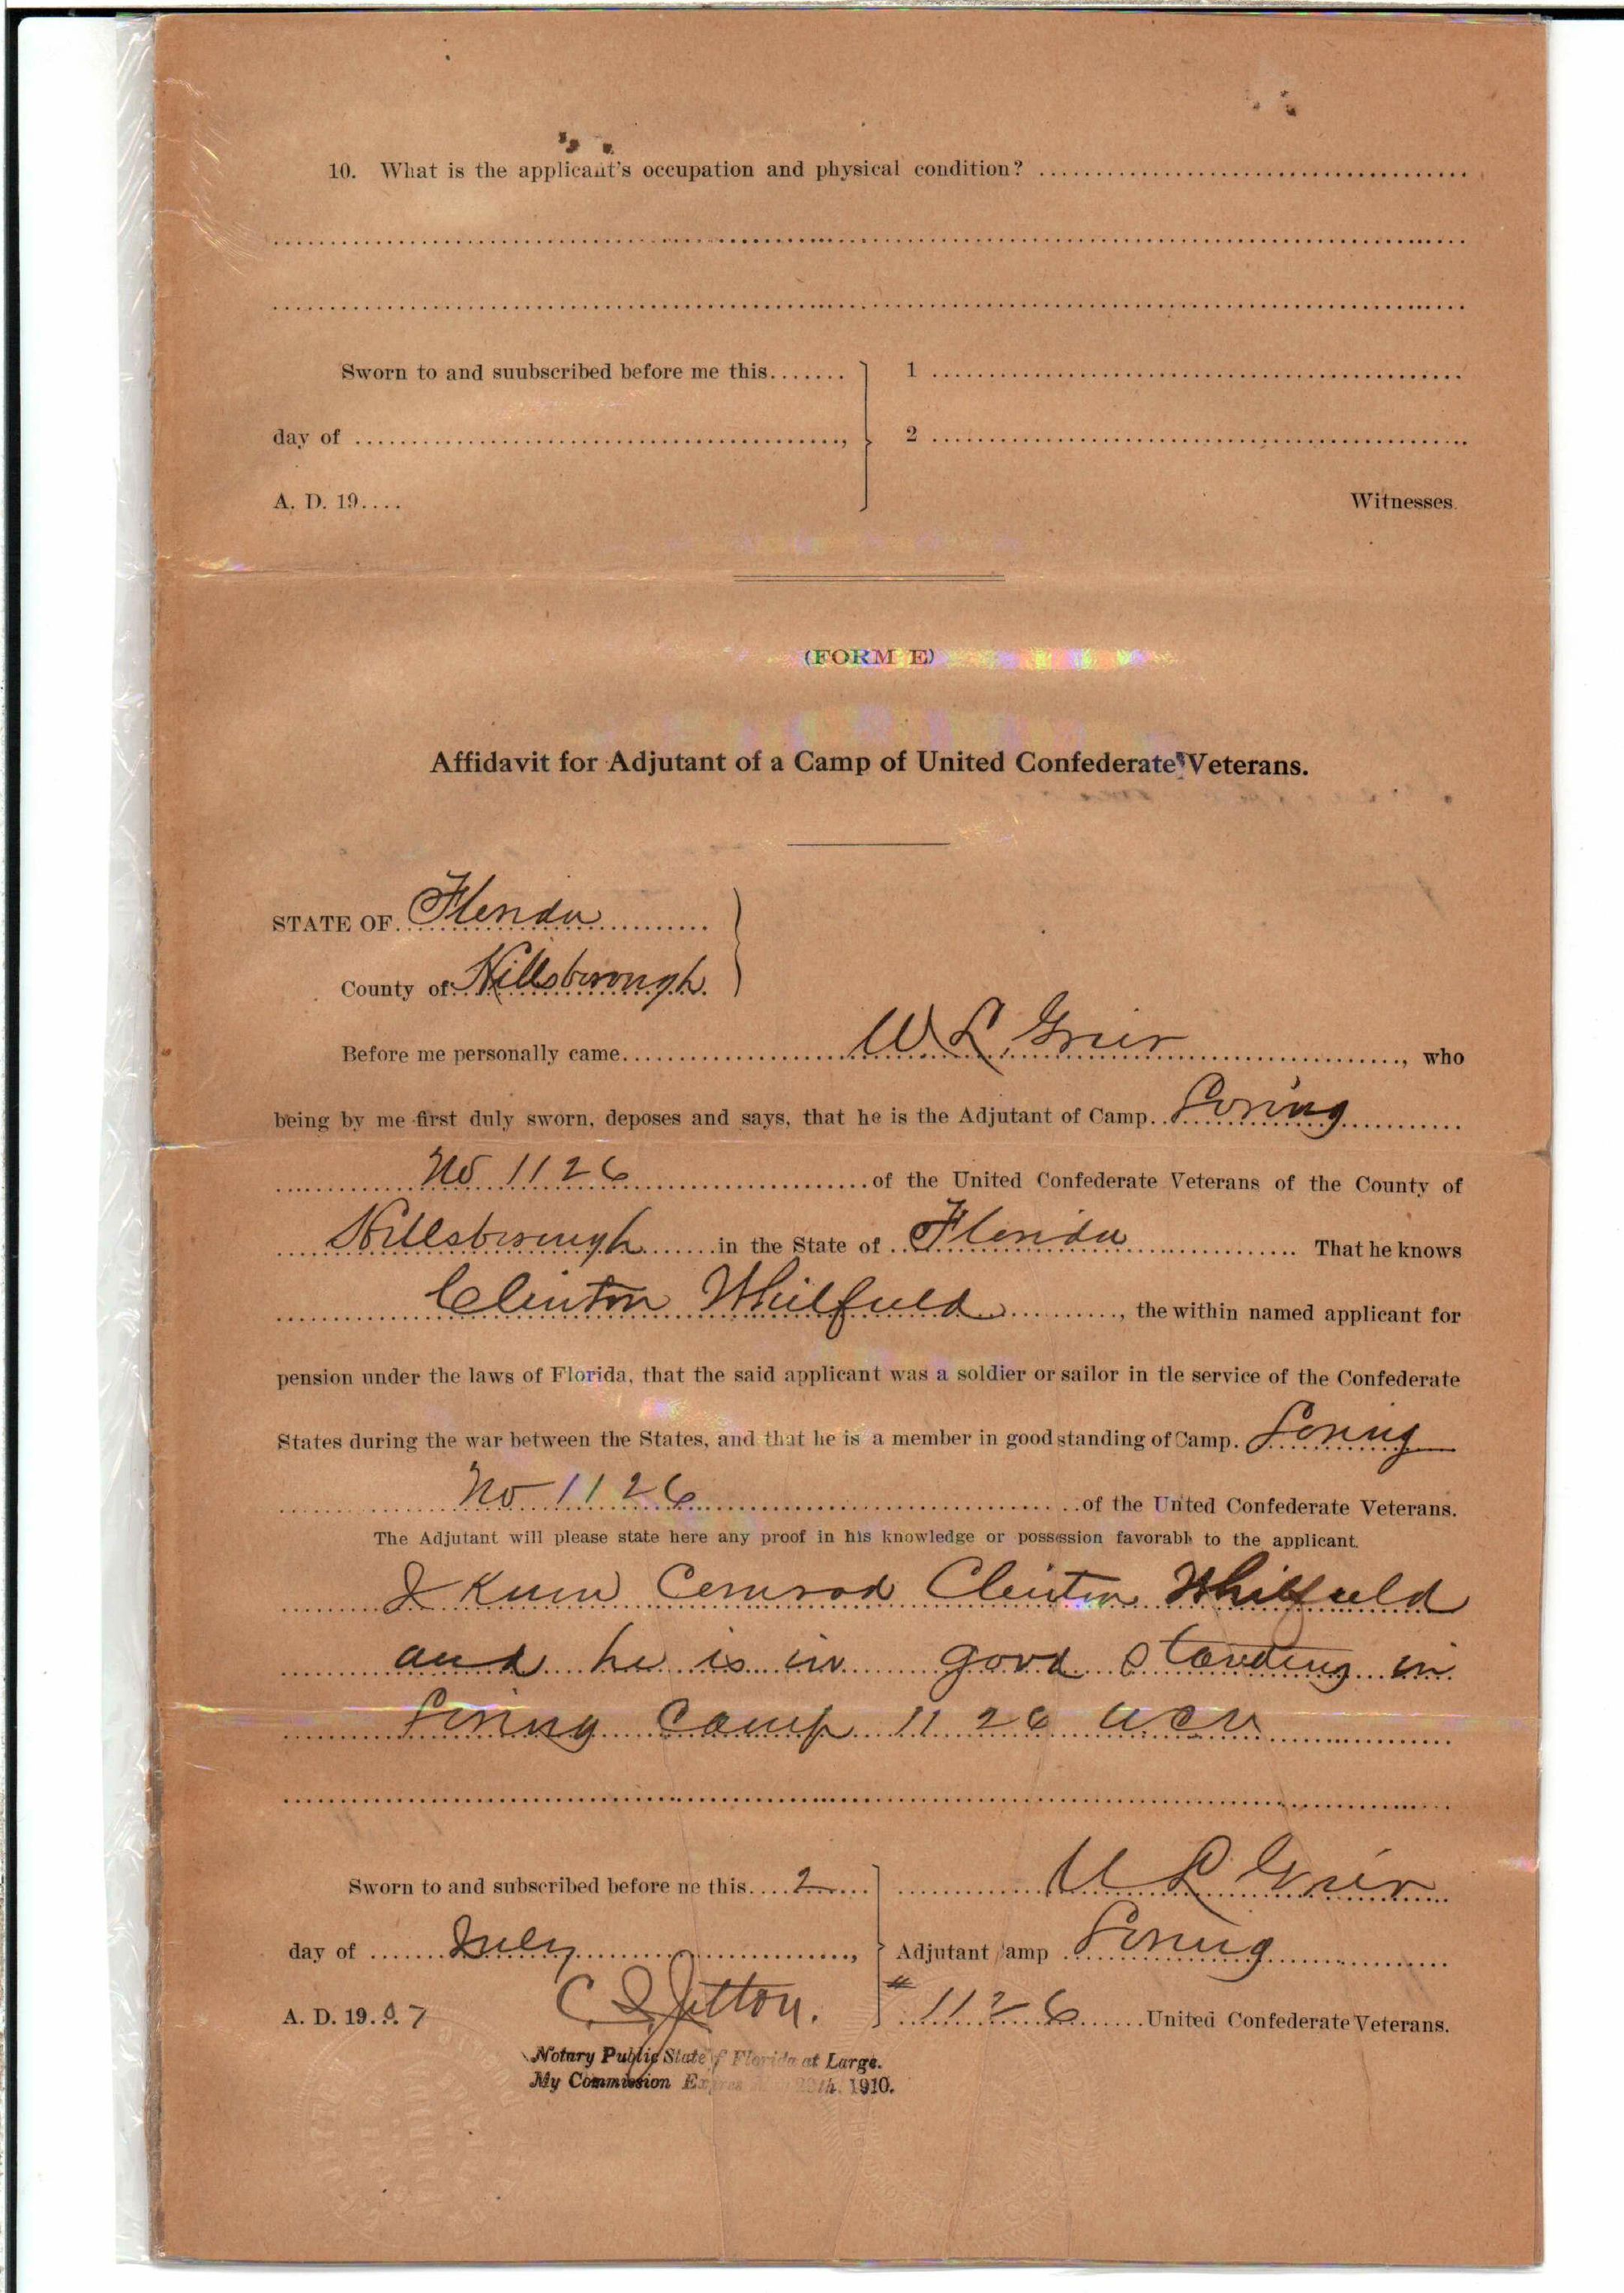 10. What is the applicant's occupation and physical condition?
Sworn to and suubscribed before me this....... 1
day of ......, 2
A. D. 19.... Witnesses.
(FORM E)
Affidavit for Adjutant of a Camp of United Confederate Veterans.
STATE OF Florida
County of Hillsborough
Before me personally came W L Grier, who
being by me first duly sworn, deposes and says, that he is the Adjutant of Camp Loring
No 1126 of the United Confederate Veterans of the County of
Hillsborough in the State of Florida That he knows
Clinton Whitfield, the within named applicant for
pension under the laws of Florida, that the said applicant was a soldier or sailor in tle service of the Confederate
States during the war between the States, and that he is a member in good standing of Camp. Loring
No 1126 of the United Confederate Veterans.
The Adjutant will please state here any proof in his knowledge or possession favorabl to the applicant.
I Know Comrad Clinton Whitfield
and he is in good standing in
Loring Camp 1126 UCV
Sworn to and subscribed before me this 2 W L Grier
day of July, Adjutant amp Loring
A. D. 19.07 # 1126 United Confederate Veterans.
Notary Public State of Florida at Large.
My Commission Expires 1910.